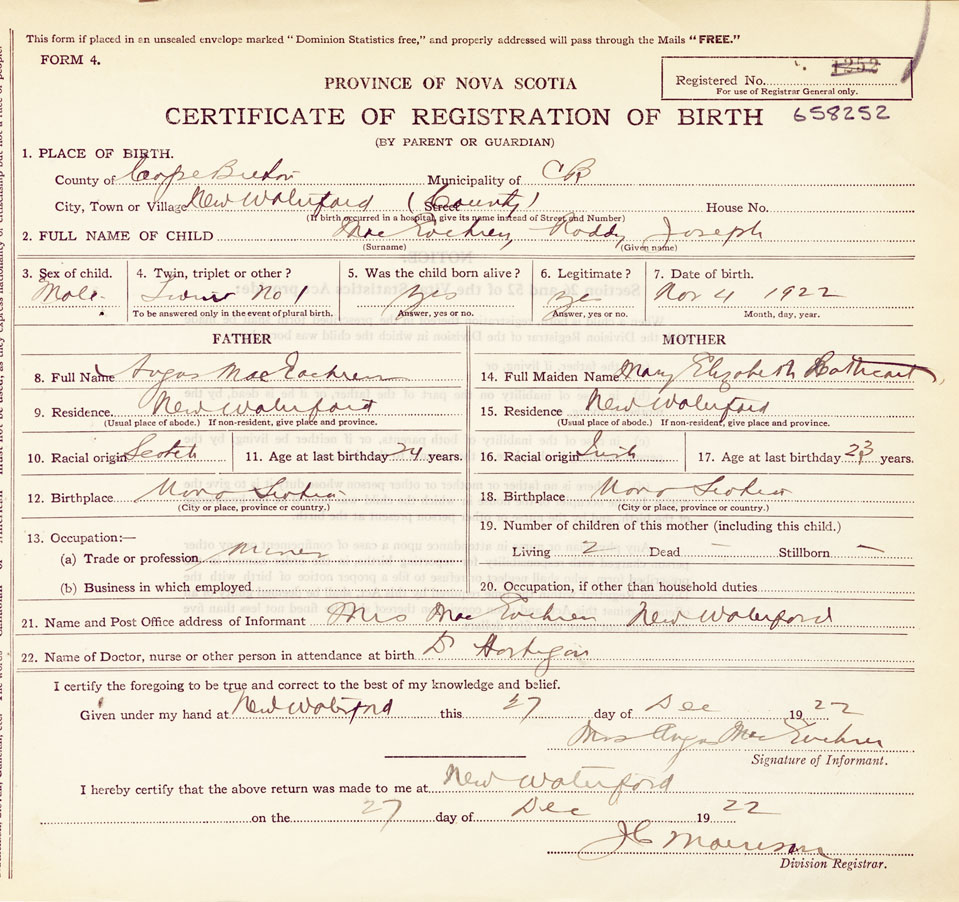 This form if placed in an unsealed envelope marked "Dominion Statistics free," and properly addressed will pass through the Mails "FREE."
FORM 4.
Registered No. 1252
For use of Registrar General only.
PROVINCE OF NOVA SCOTIA
CERTIFICATE OF REGISTRATION OF BIRTH 658252
(BY PARENT OR GUARDIAN)
1. PLACE OF BIRTH.
County of Cape Breton Municipality of CB
City, Town or Village New Waterford Street (County) House No.
(If birth occurred in a hospital, give its name instead of Street and Number)
2. FULL NAME OF CHILD MacEachren Roddy Joseph
(Surname) (Given name)
3. Sex of child. 4. Twin, triplet or other? 5. Was the child born alive? 6. Legitimate? 7. Date of birth.
Male Twin No 1 yes yes Nov 4 1922
To be answered only in the event of plural birth. Answer, yes or no. Answer, yes or no. Month, day, year.
FATHER
8. Full Name Angus MacEachren
9. Residence. New Waterford
(Usual place of abode.) If non-resident, give place and province.
10. Racial origin Scotch 11. Age at last birthday 24 years.
12. Birthplace Nova Scotia
(City or place, province or country.)
13. Occupation:—
(a) Trade or profession miner
(b) Business in which employed
MOTHER
14. Full Maiden Name Mary Elizabeth Cathcart
15. Residence New Waterford
(Usual place of abode.) If non-resident, give place and province.
16. Racial origin Irish 17. Age at last birthday 23 years.
18. Birthplace Nova Scotia
(City or place, province or country.)
19. Number of children of this mother (including this child.)
Living 2 Dead – Stillborn –
20. Occupation, if other than household duties
21. Name and Post Office address of Informant Mrs MacEachren New Waterford
22. Name of Doctor, nurse or other person in attendance at birth Dr Hartigan
I certify the foregoing to be true and correct to the best of my knowledge and belief.
Given under my hand at New Waterford this 27 day of Dec 1922
Mrs Angus MacEachren
Signature of Informant.
I hereby certify that the above return was made to me at New Waterford
on the 27 day of Dec 1922
JC Morrison
Division Registrar.